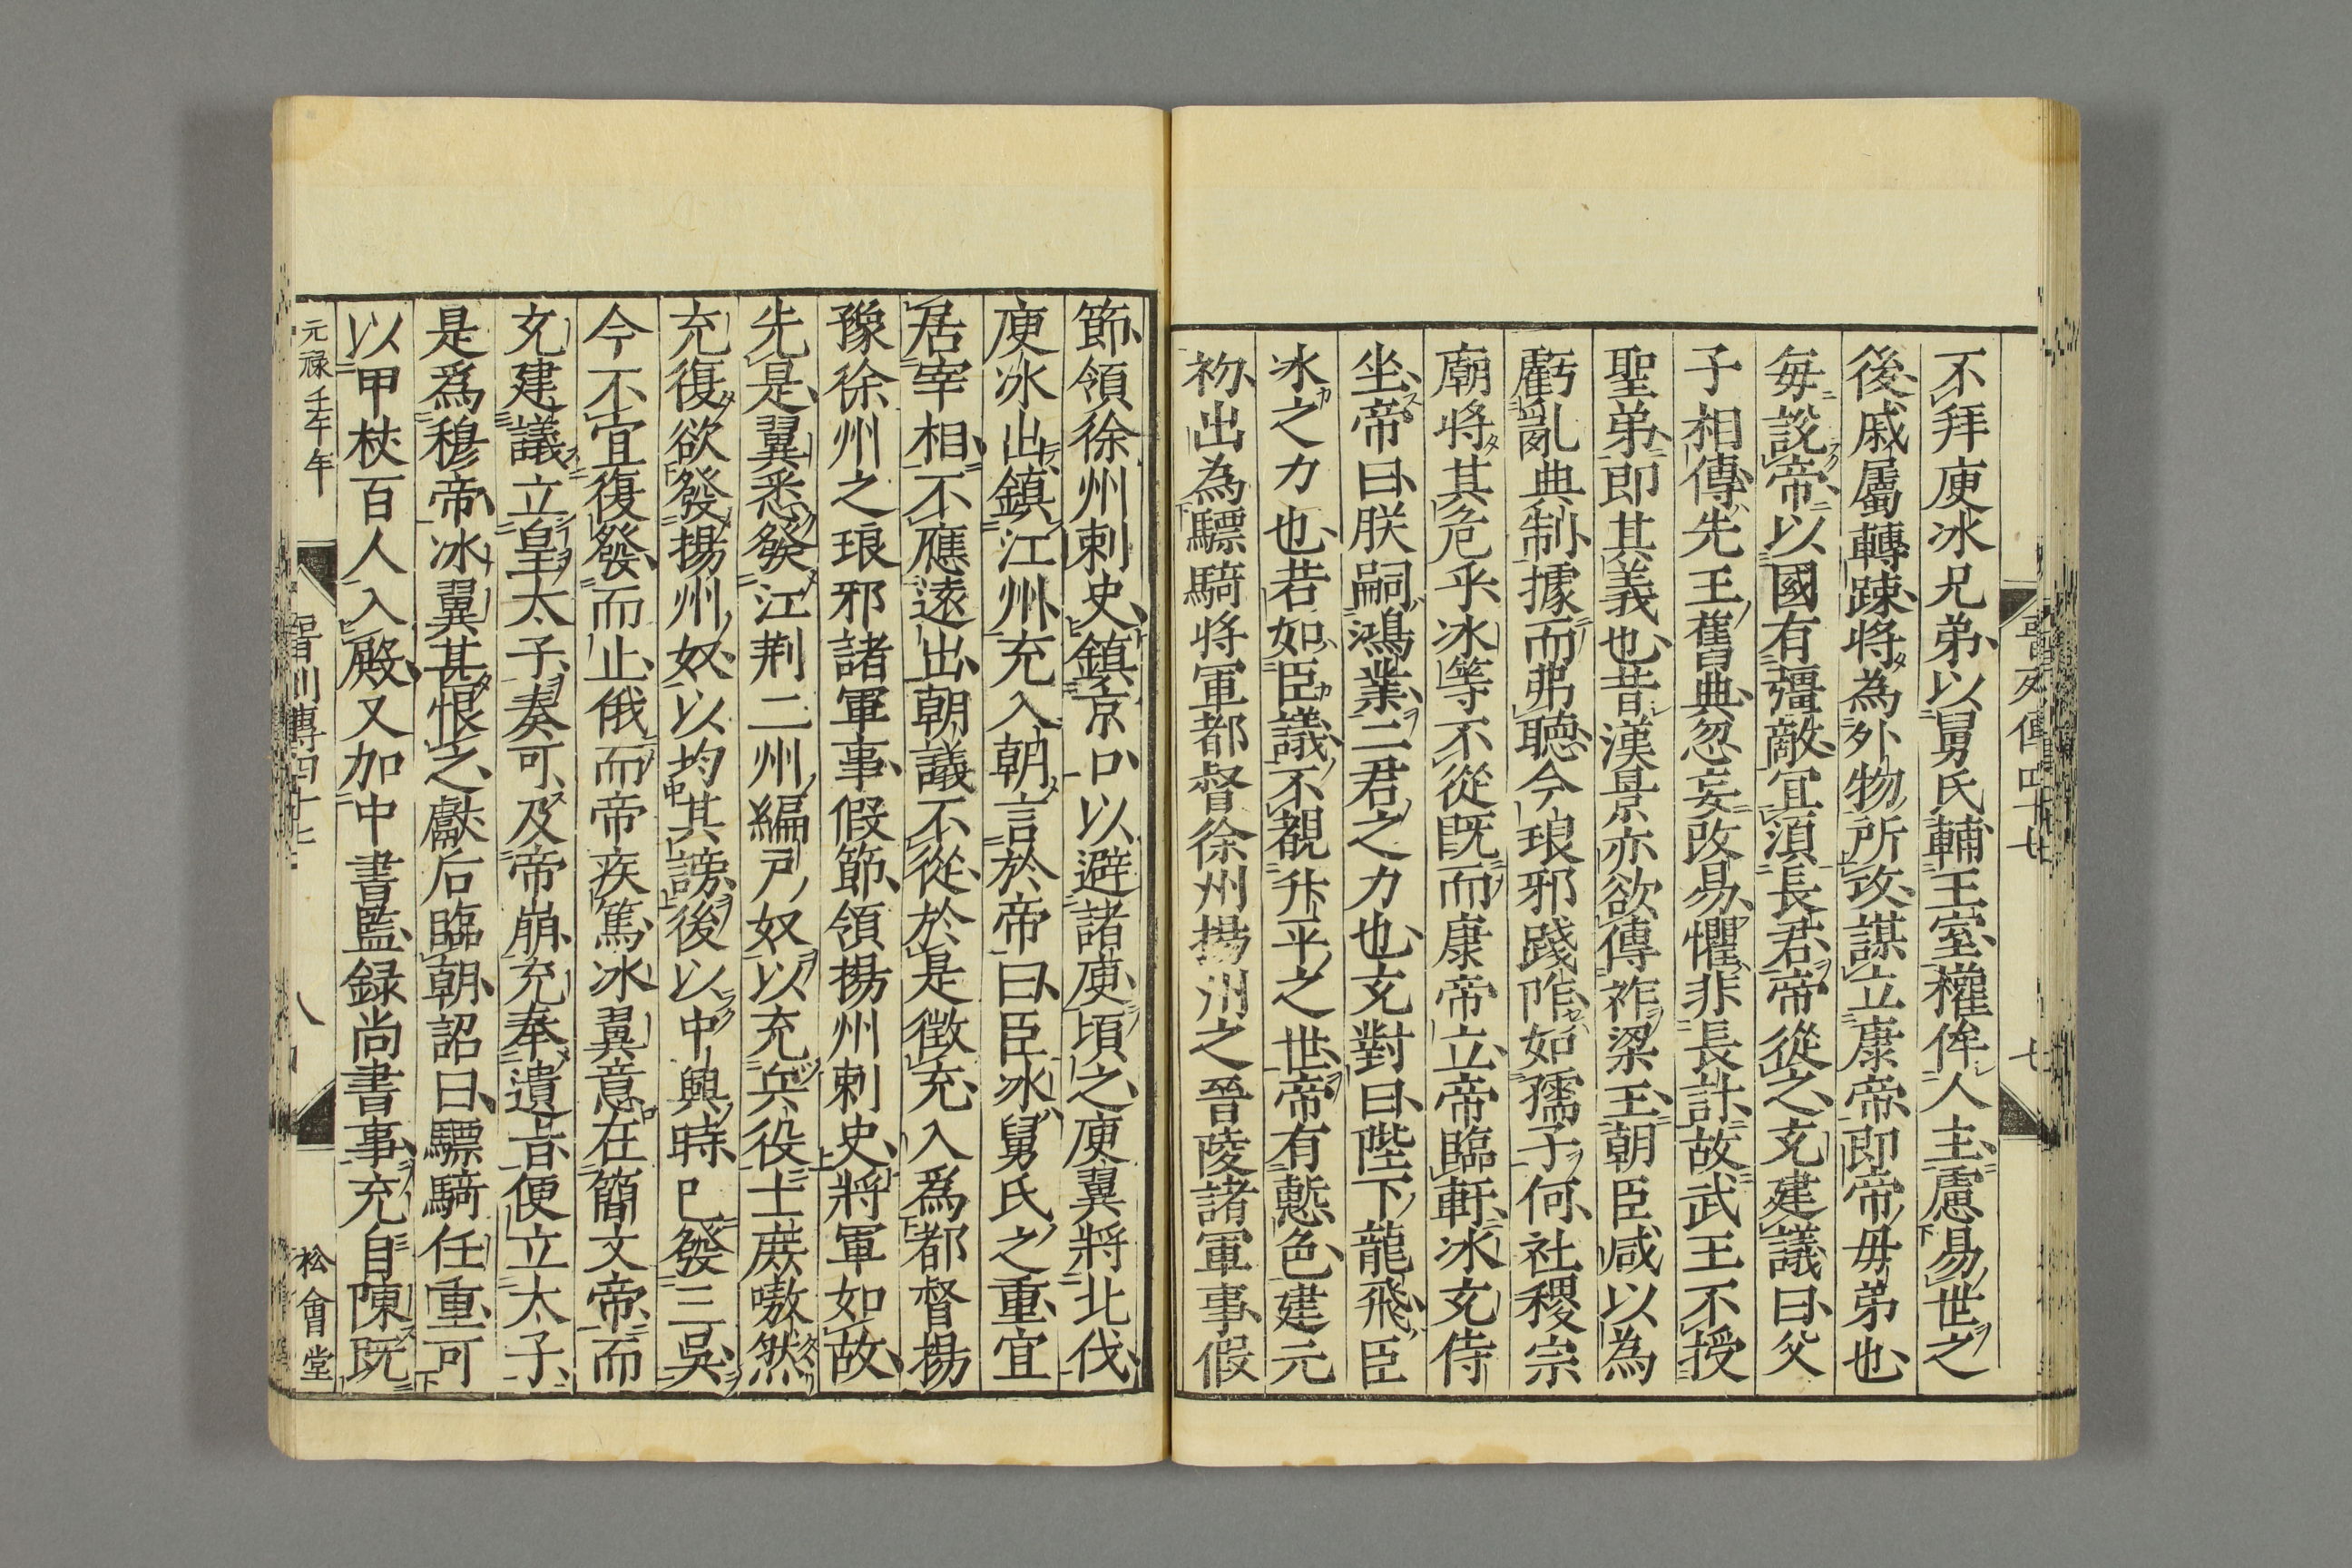 晋列傳四十七 七
不拜庾冰兄弟以舅氏輔王室權侔人主慮易世之
後戚屬轉踈将為外物所攻謀立康帝即帝毋弟也
毎說帝以國有彊敵宜湏長君帝從之充建議曰父
子相傳先王舊典忽妄改易懼非長計故武王不授
聖弟即其義也昔漢景亦欲傳祚梁王朝臣咸以為
虧亂典制據而弗聴今琅邪踐阼如孺子何社稷宗
廟將其危乎冰等不從既而康帝立帝臨軒冰充侍
坐帝曰朕嗣鴻業二君之力也充對曰陛下龍飛臣
冰之力也若如臣議不覩升平之世帝有慙色建元
初出為驃騎将軍都督徐州揚州之晉陵諸軍事假
節領徐州刺史鎮京口以避諸庾頃之庾翼將北伐
庾冰出鎮江州充入朝言於帝曰臣冰舅氏之重宜
居宰相不應遠出朝議不從於是徴充入爲都督揚
豫徐州之琅邪諸軍事假節領揚州刺史將軍如故
先是翼悉發江荆二州編戸奴以充兵役士庶嗷然
充復欲發揚州奴以均其謗後以中興時已發三吳
今不宜復發而止俄而帝疾篤冰翼意在簡文帝而
充建議立皇太子奏可及帝崩充奉遺旨便立太子
是爲穆帝冰翼甚恨之獻后臨朝詔曰驃騎任重可
以甲杖百人入殿又加中書監録尚書事充自陳既
元禄壬午年 晋列傳四十七 八 松會堂